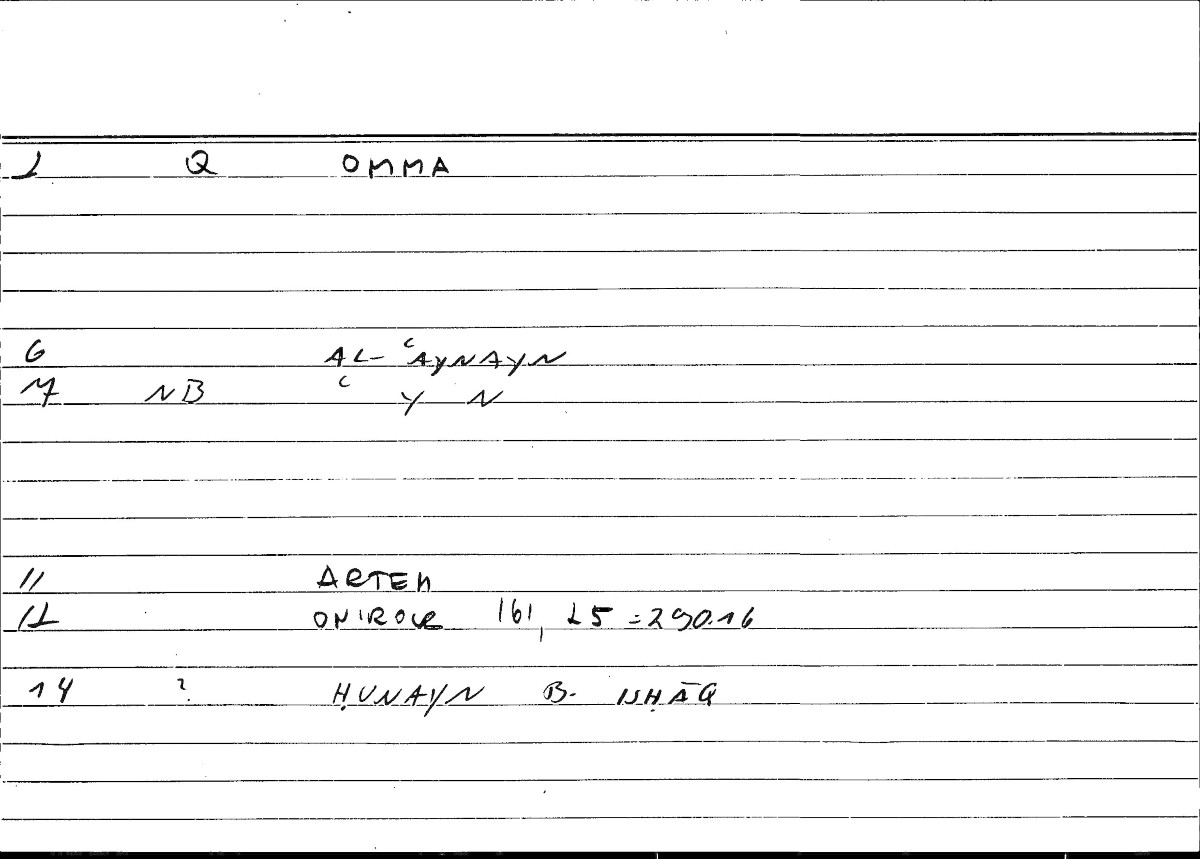 2 Q OMMA
6 AL-ʿAYNAYN
7 NB ʿ Y N
11 ARTEM
12 ONIROCR 161, 25 = 290.16
14 ? ḤUNAYN B. ISḤĀQ